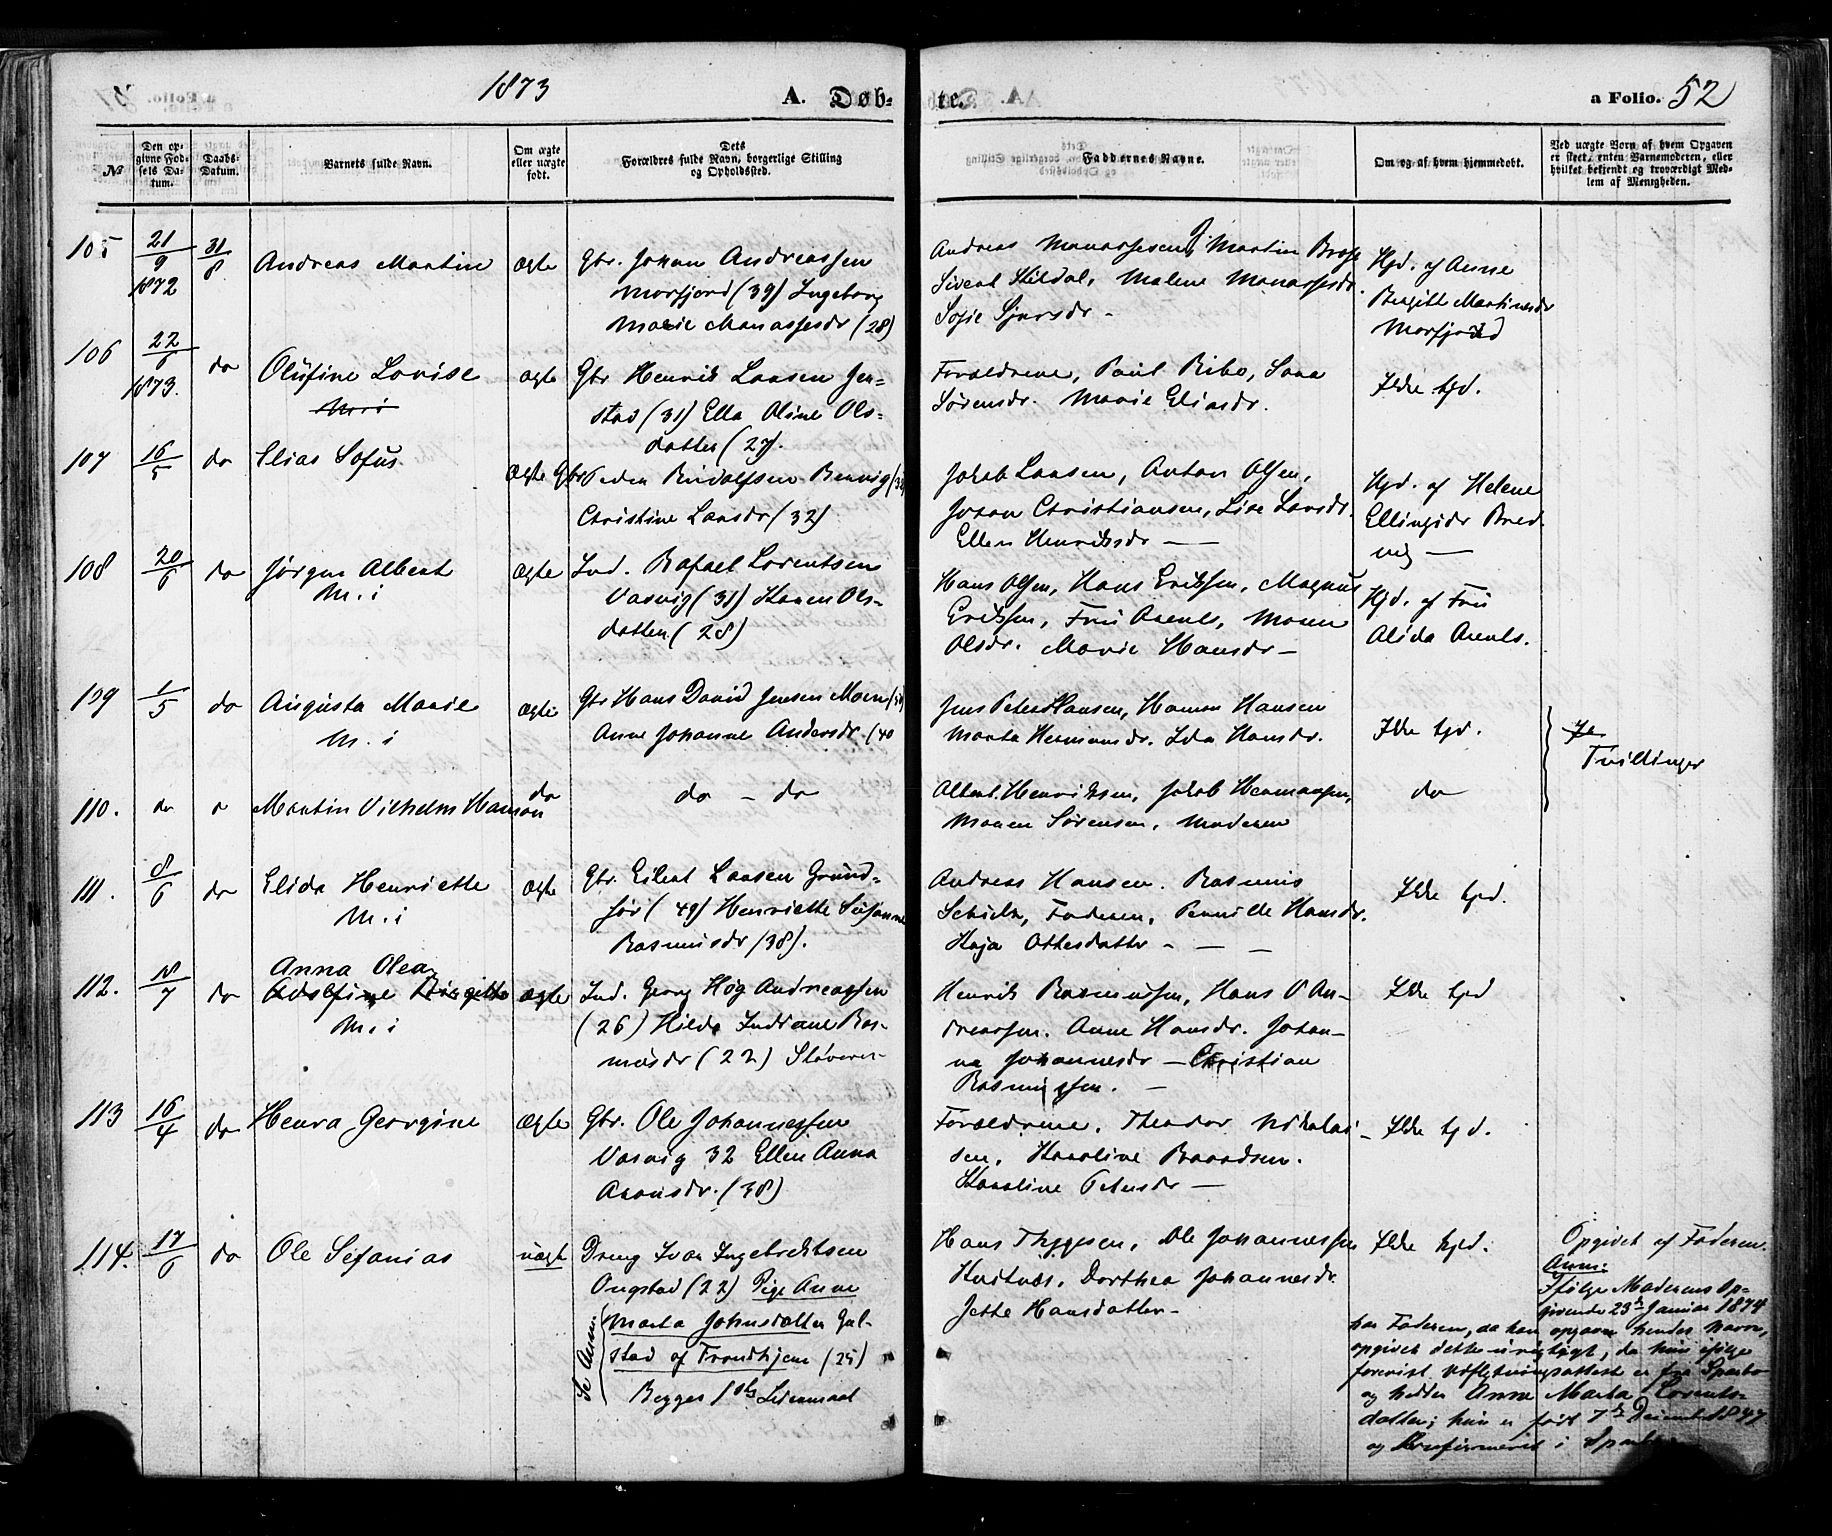 1873
A. Døb-
te.
a Folio. 52
№
Den op-
givne Fød-
sels Da-
tum.
Daabs-
Datum.
Barnets fulde Navn.
Om ægte
eller uægte
født.
Dets
Forældres fulde Navn, borgerlige Stilling
og Opholdssted.
Faddernes Navne.
Om og af hvem hjemmedøbt.
Ved uægte Børn af hvem Opgaven
er skeet, enten Barnemoderen, eller
hvilket bekjendt og troværdigt Med-
lem af Menigheden.
105
21/9
1872
31/8
Andreas Martin
ægte
Gbr. Johan Andreassen
Morfjord (39) Ingeborg
Marie Manassesdr (28)
Andreas Manassesen, Martin
Sivert Kildal, Malene Manassesdr.
Sofie Sjursdr -
Hjd. af Anne
Bergitte Martinesdr
Morfjord
106
22/6
1873.
do
Olufine Lovise
M. i
ægte
Gbr Henrik Larsen Jer-
stad (31) Ella Oline Ols-
datter (27).
Forældrene, Paul Ribe, Sara
Sørensdr. Marie Eliasdr.
Ikke hjd.
107
16/5
do
Elias Sofus
Ægte
Gbr Peder Rudolfsen
Christine Larsdr (32)
Jakob Larsen, Anton Olsen,
Johan Christiansen, Lise Larsdr.
Ellen Henriksdr - -
Hjd. af Helene
Ellingsdr Bred
vig -
108
20/6
do
Jørgen Albert
M. i
Ægte
Ind. Rafael Lorentsen
Vasvig (31) Karen Ols-
datter (28)
Hans Olsen, Hans Eriksen, Magnus
Eriksen, Fru Arents, Maren
Olsdr. Marie Hansdr -
Hjd. af Fru
Alida Arents.
109
1/5
do
Augusta Marie
M. i
ægte
Gbr Hans David Jensen Moen
Anne Johanne Andersdr. (40
Jens Peter Hansen, Hanna Hansen
Marta Hermansdr. Ida Hansdr.
Ikke hjd.
Ja
Tvillinger
110.
do
Martin Vilhelm Hanson
do
do - do
Albert Henriksen, Jakob Hermansen,
Maren Sørensen, Moderen
do
111.
8/6
do
Elida Henriette
M. i
ægte
Gbr. Eilert Larsen Grund-
før (49) Henriette Susanne
Rasmusdr (38).
Andreas Hansen. Rasmus
Schielt, Faderen, Pernille Hansdr.
Kaja Ottesdatter - - -
Ikke hjd.
112.
18/7
do
Anna Olea
Adolfine Birgitte
M. i
ægte
Ind. Georg Høg Andreassen
(26) Hilda Indiane Ras-
musdr (22)
Henrik Rasmussen, Hans O An-
dreassen. Anne Hansdr. Johan-
na Johannesdr - Christian
Rasmussen. -
Ikke hjd
113
16/4
do
Henra Georgine
Ægte
Gbr. Ole Johannessen
Vasvig 32 Ellen Anna
Aronsdr. (38)
Forældrene. Theodor Nikolai-
sen, Karoline Baardsen.
Karoline Petersdr -
Ikke hjd.
114.
17/6
do
Ole Sefanias
uægte
Dreng Ivar Ingebrektsen
Ongstad (22) Pige Anne
Marta Johnsdatter Gul-
stad af Trondhjem (25)
Begges 1ste Leiermaal
Se Anm.
Hans Thygesen, Ole Johannessen
Hustnæs, Dorthea Johannesdr.
Jette Hansdatter -
Ikke hjd.
Opgivet af Faderen.
Anm:
Ifølge Moderens Op-
givende 23de Januar 1874
har Faderen, da han opgav hendes Navn,
opgivet dette urigtigt, da hun ifølge
forevist Udflytningsattest er fra Sparbo
og hedder Anne Marta Lorents-
datter; hun er født 7de Decemb. 1847
og Konfirmeret i